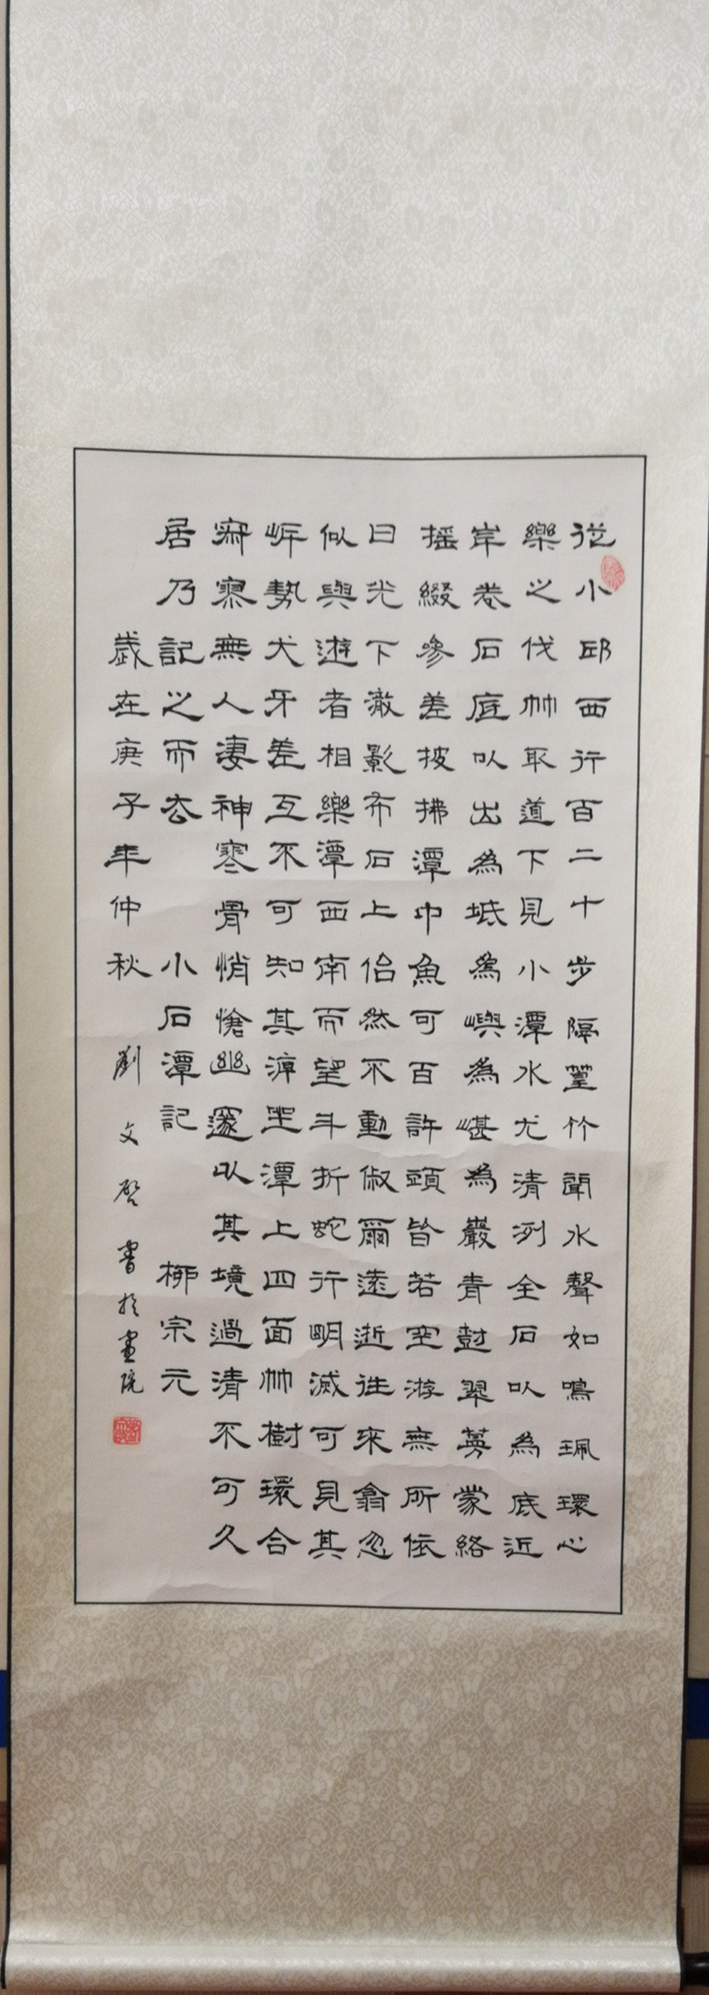 從小邱西行百二十步隔篁竹聞水聲如鳴珮環心
樂之伐竹取道下見小潭水尤清冽全石以為底近
岸卷石底以出為坻為嶼為嵁為巖青樹翠蔓蒙絡
搖綴參差披拂潭中魚可百許頭皆若空游無所依
日光下澈影布石上佁然不動俶爾遠逝往來翕忽
似與遊者相樂潭西南而望斗折蛇行明滅可見其
岸勢犬牙差互不可知其源坐潭上四面竹樹環合
寂寥無人凄神寒骨悄愴幽邃以其境過清不可久
居乃記之而去 小石潭記 柳宗元
歲在庚子年仲秋 劉文啓書於畫院